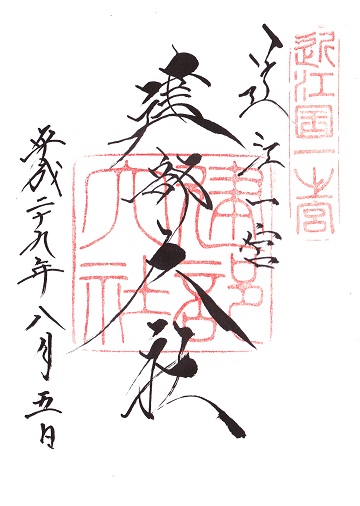 近江國一宮
江一宮
建部大社
建部大社
平成二十九年八月五日